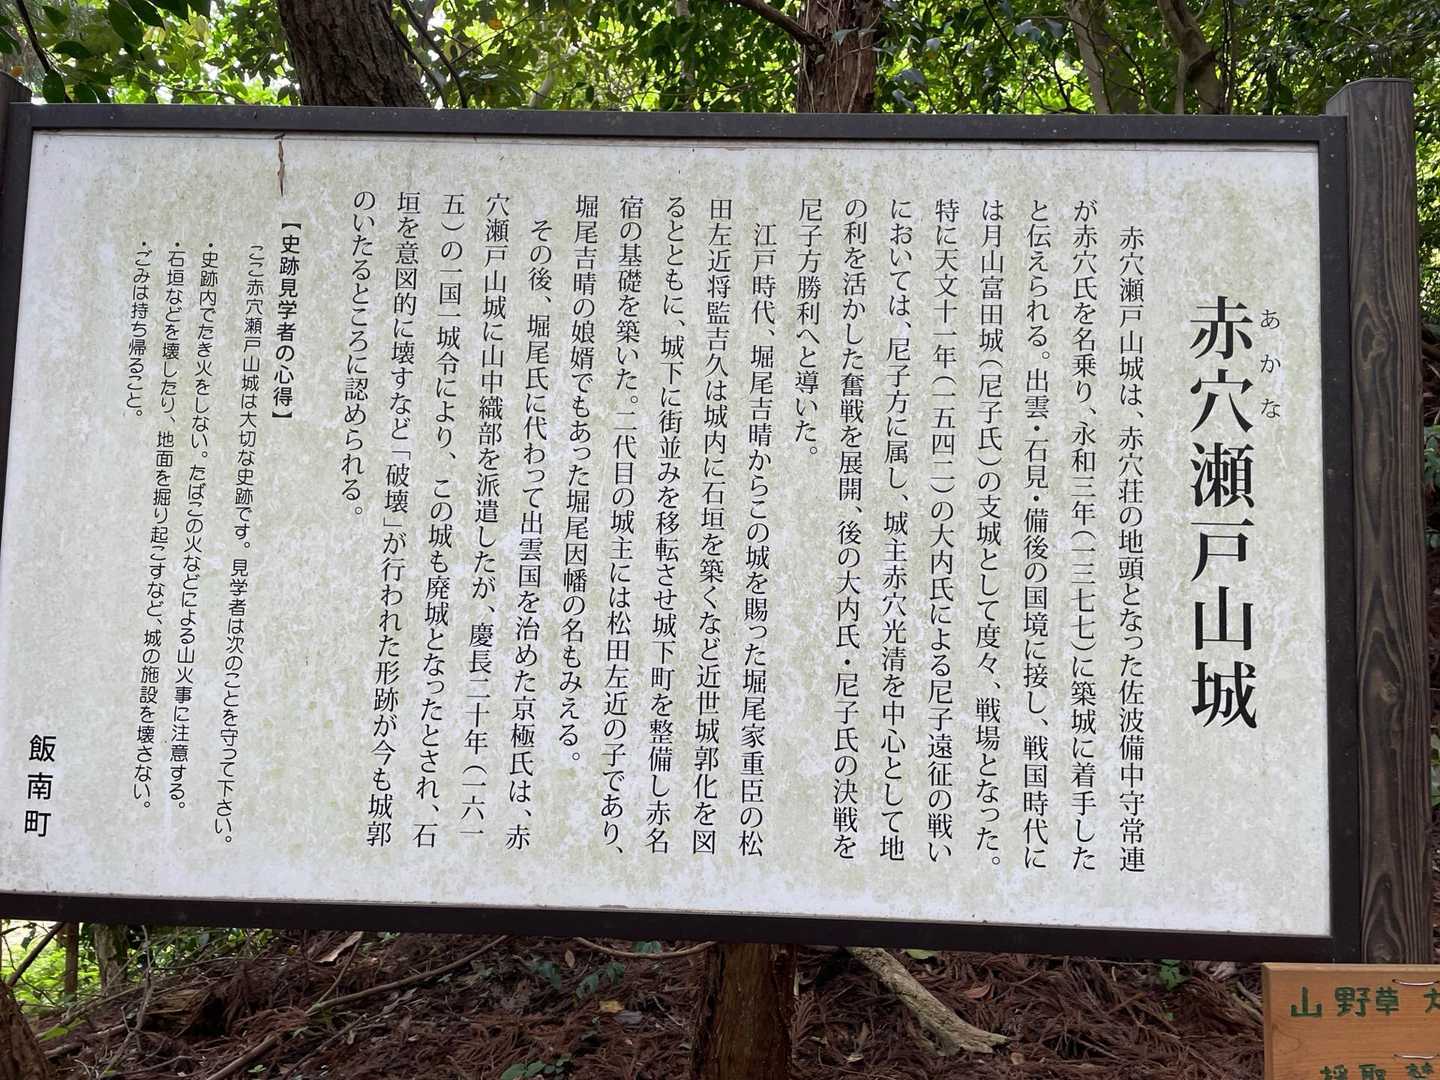 赤穴瀬戸山城
あかな
赤穴瀬戸山城は、赤穴荘の地頭となった佐波備中守常連
が赤穴氏を名乗り、永和三年(一三七七)に築城に着手した
と伝えられる。出雲・石見・備後の国境に接し、戦国時代に
は月山富田城(尼子氏)の支城として度々、戦場となった。
特に天文十一年(一五四二)の大内氏による尼子遠征の戦い
においては、尼子方に属し、城主赤穴光清を中心として地
の利を活かした奮戦を展開、後の大内氏・尼子氏の決戦を
尼子方勝利へと導いた。
江戸時代、堀尾吉晴からこの城を賜った堀尾家重臣の松
田左近将監吉久は城内に石垣を築くなど近世城郭化を図
るとともに、城下に街並みを移転させ城下町を整備し赤名
宿の基礎を築いた。二代目の城主には松田左近の子であり、
堀尾吉晴の娘婿でもあった堀尾因幡の名もみえる。
その後、堀尾氏に代わって出雲国を治めた京極氏は、赤
穴瀬戸山城に山中織部を派遣したが、慶長二十年(一六一
五)の一国一城令により、この城も廃城となったとされ、石
垣を意図的に壊すなど「破壊」が行われた形跡が今も城郭
のいたるところに認められる。
【史跡見学者の心得】
ここ赤穴瀬戸山城は大切な史跡です。見学者は次のことを守って下さい。
・史跡内でたき火をしない。たばこの火などによる山火事に注意する。
・石垣などを壊したり、地面を掘り起こすなど、城の施設を壊さない。
・ごみは持ち帰ること。
飯南町
山野草
採取